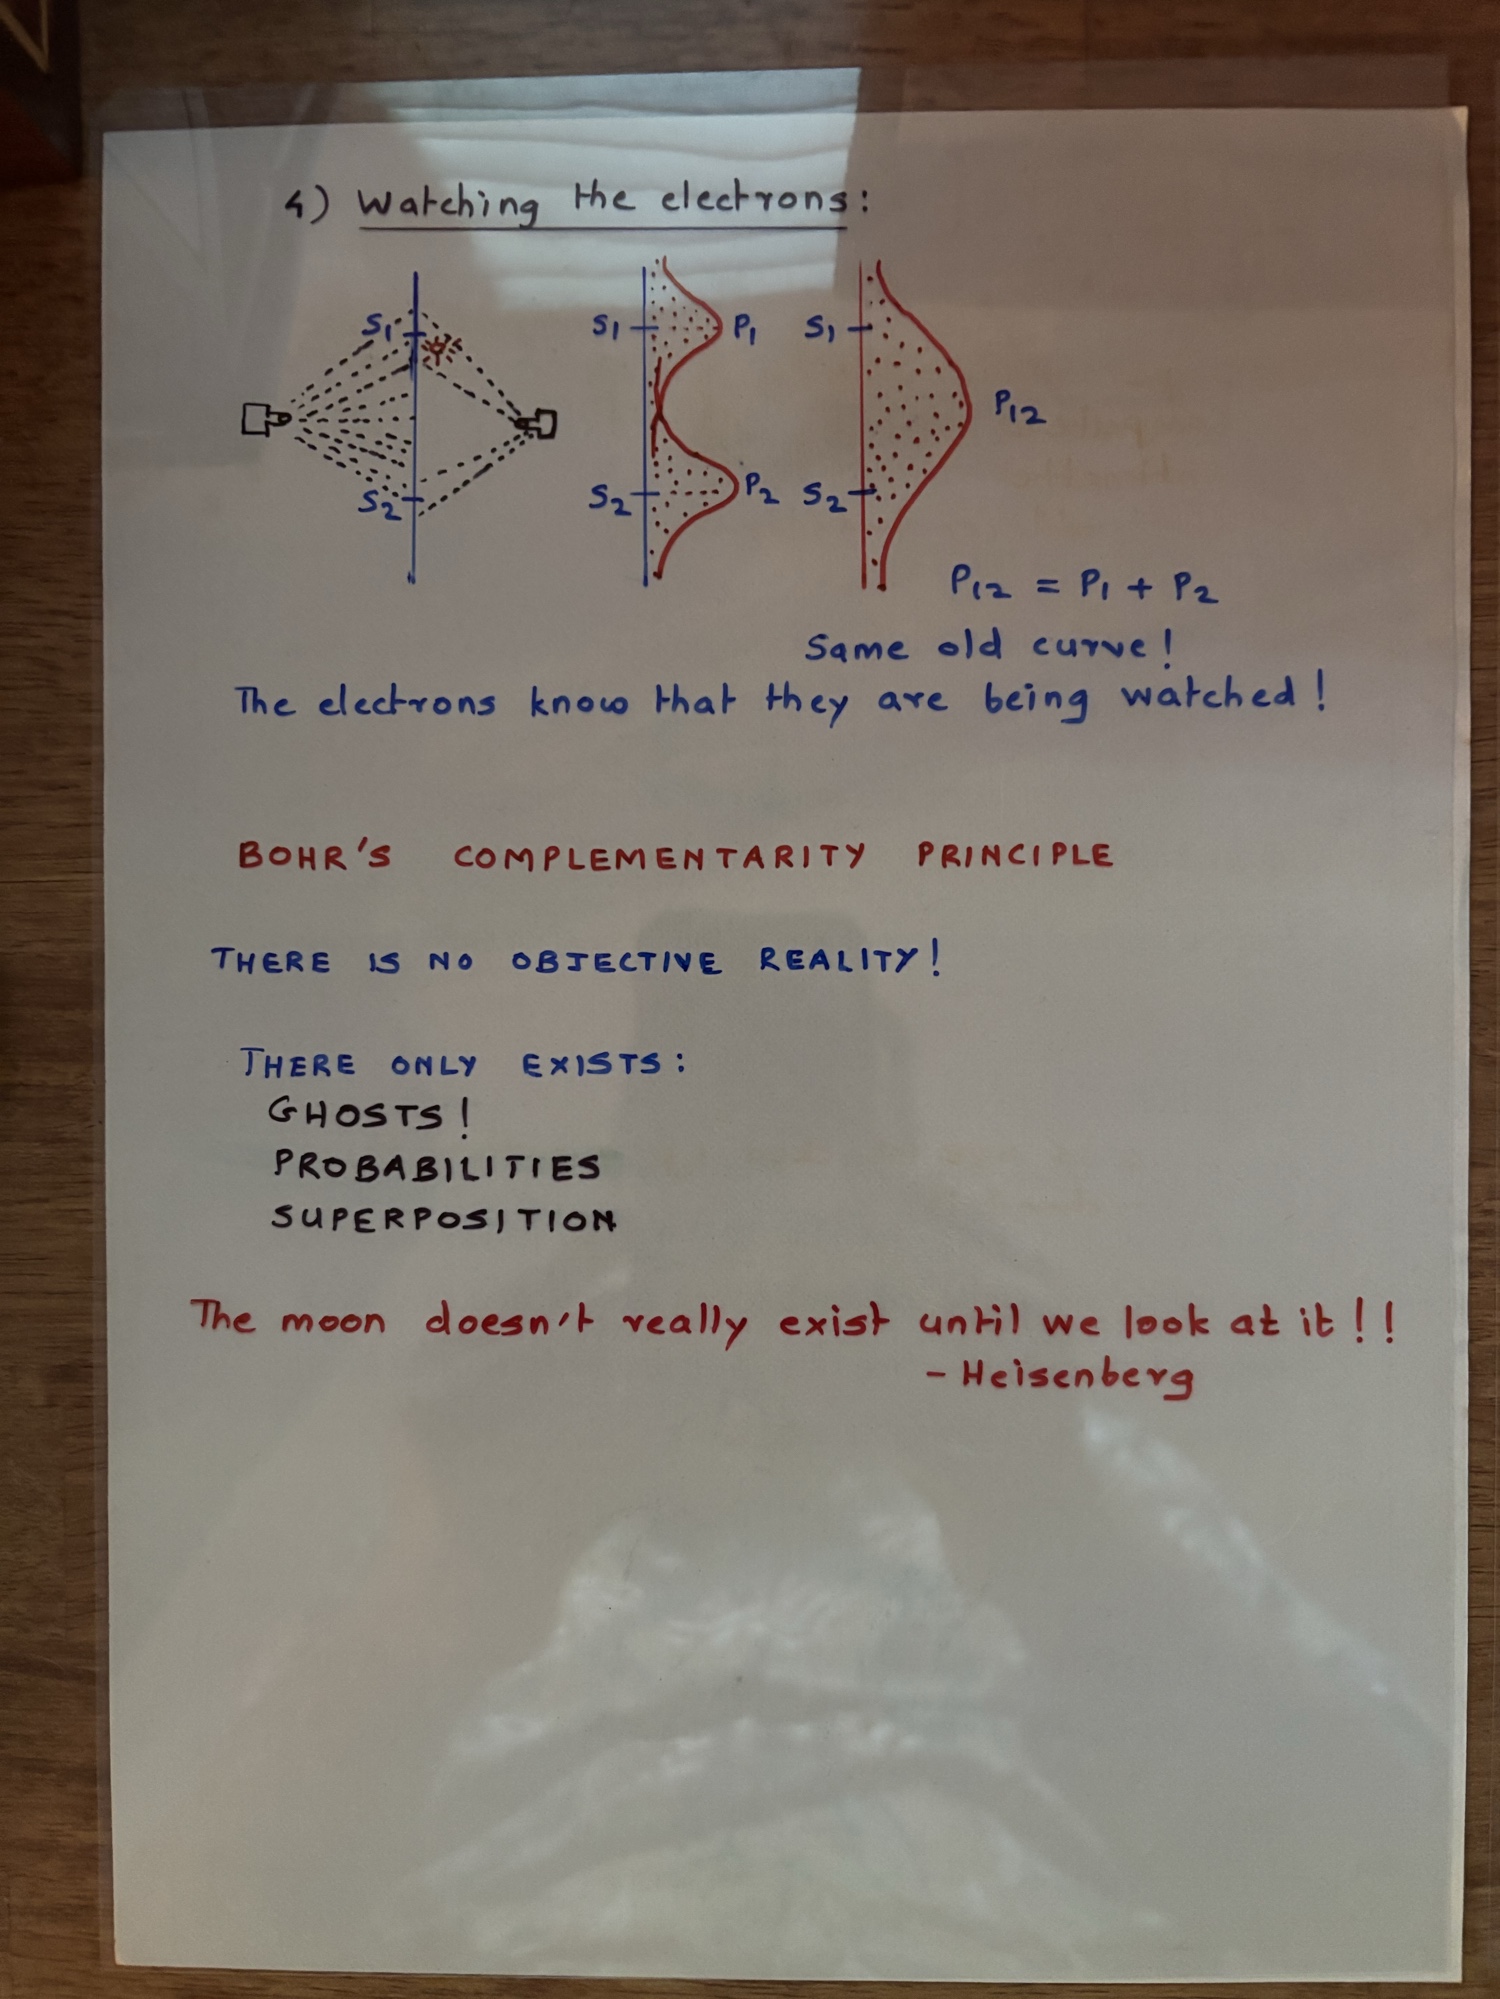 4) Watching the electrons:
S1
S2
S1
P1
S2
P2
S1
P12
S2
P12 = P1 + P2
Same old curve!
The electrons know that they are being watched!
BOHR'S COMPLEMENTARITY PRINCIPLE
THERE IS NO OBJECTIVE REALITY!
THERE ONLY EXISTS:
GHOSTS!
PROBABILITIES
SUPERPOSITION
The moon doesn't really exist until we look at it!!
- Heisenberg